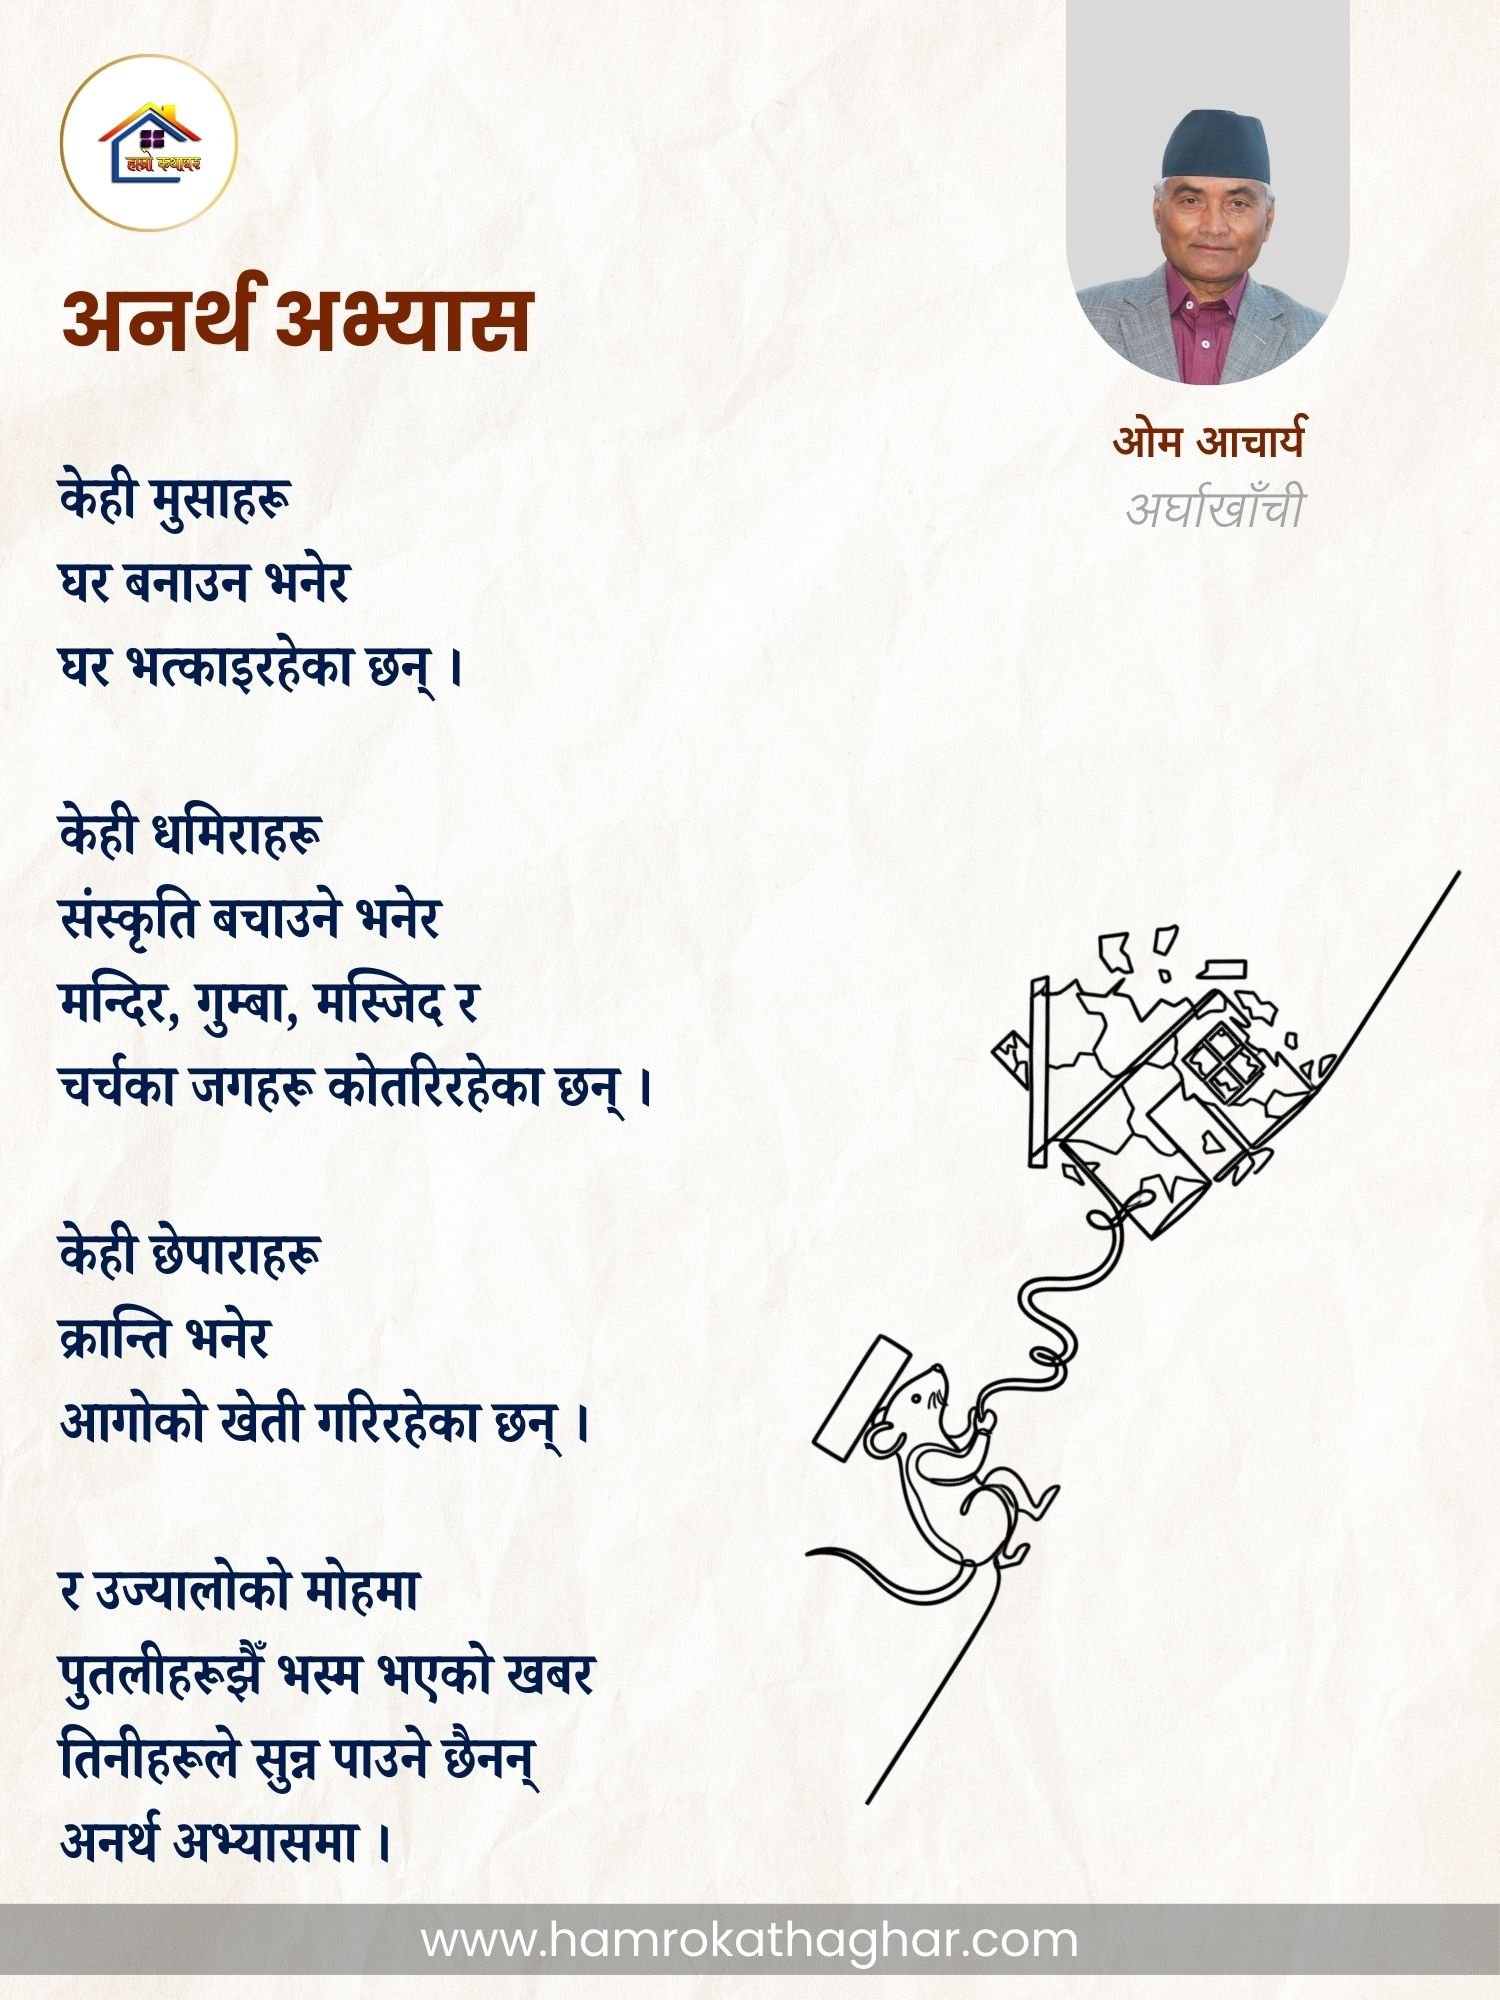 हाम्रो कथाघर
अनर्थ अभ्यास
ओम आचार्य
अर्घाखाँची
केही मुसाहरू
घर बनाउन भनेर
घर भत्काइरहेका छन् ।
केही धमिराहरू
संस्कृति बचाउने भनेर
मन्दिर, गुम्बा, मस्जिद र
चर्चका जगहरू कोतरिरहेका छन् ।
केही छेपाराहरू
क्रान्ति भनेर
आगोको खेती गरिरहेका छन् ।
र उज्यालोको मोहमा
पुतलीहरूझैँ भस्म भएको खबर
तिनीहरूले सुन्न पाउने छैनन्
अनर्थ अभ्यासमा ।
www.hamrokathaghar.com